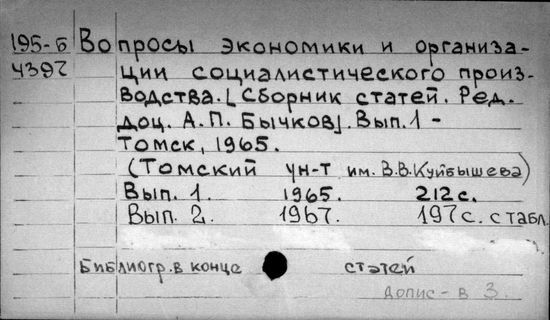 195-Б Вопросы экономики и организа-
4392 ции социалистического произ-
водства. [Сборник статей. Ред.
доц. А.П. Бычков]. Вып. 1 -
Томск, 1965.
(Томский ун-т им. В.В. Куйбышева)
Вып. 1. 1965. 212 с.
Вып. 2. 1967. 197 с. с табл.
Библиогр. в конце статей
допис - в 3.